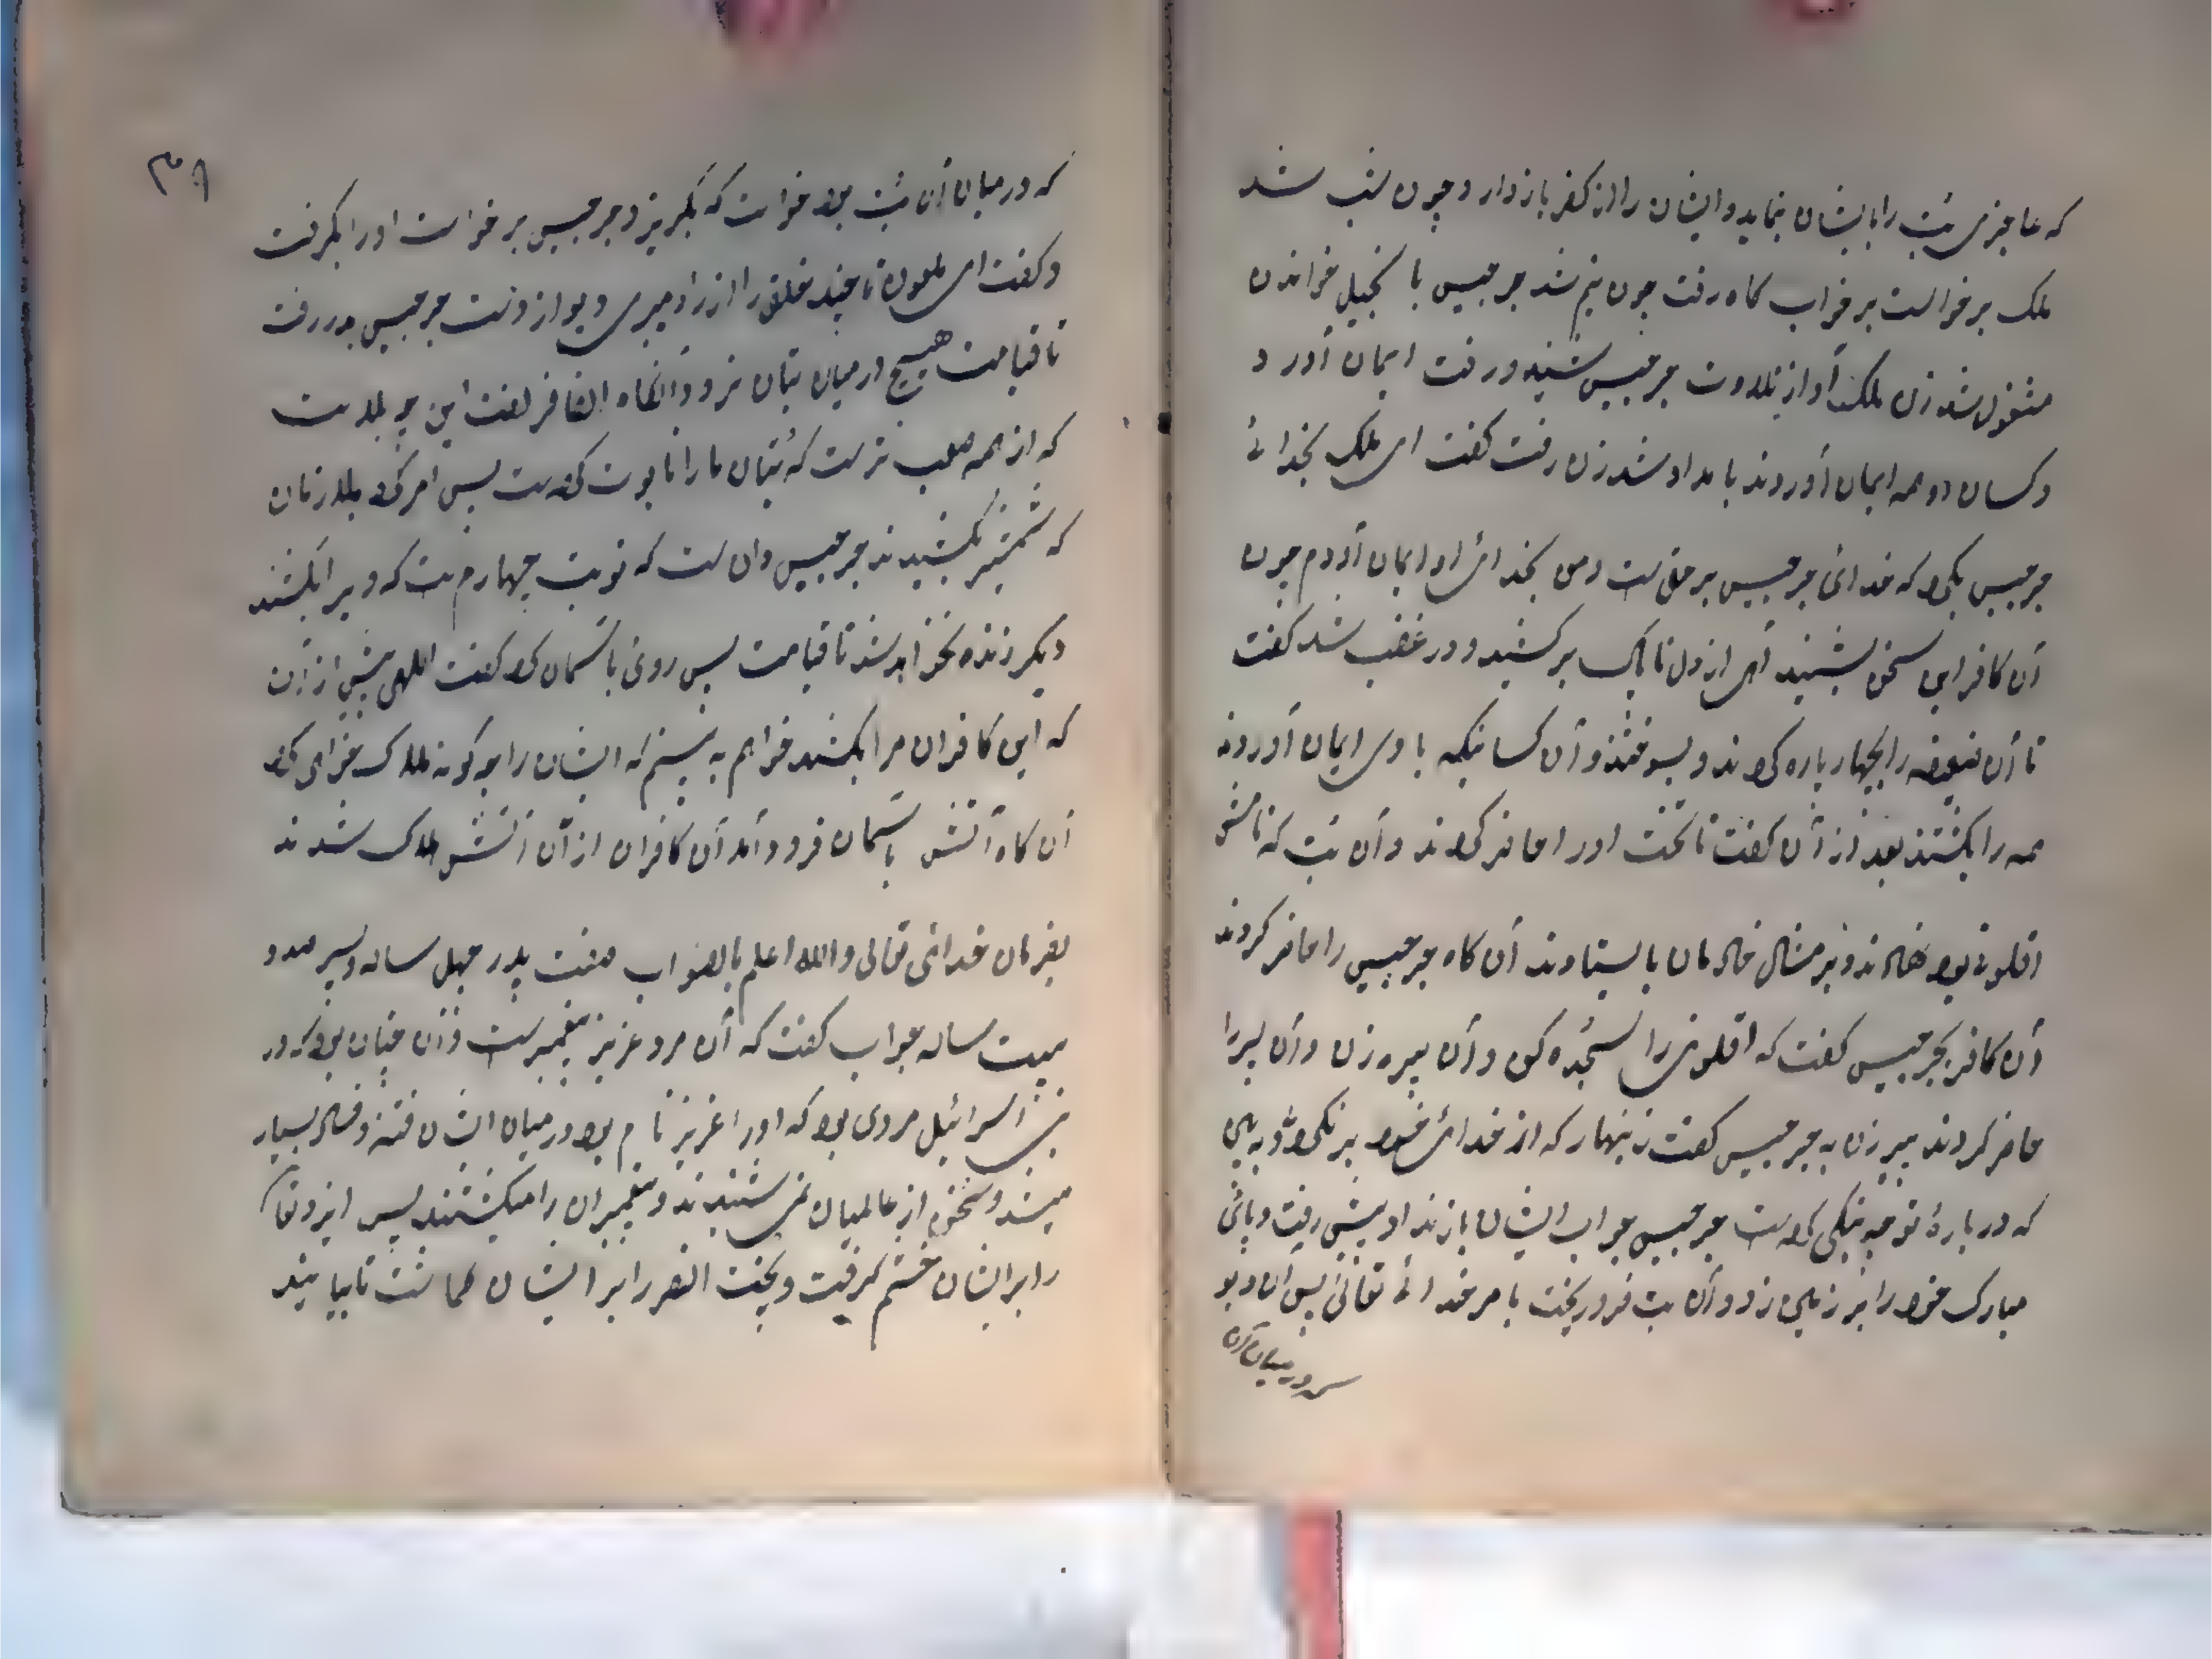 که عاجزی بت را بایشان نماید و ایشان را از کفر باز دارد و چون شب شد
ملک برخواست بر خواب کاه رفت چون نیم شد جرجیس با نجیل خواندن
مشغول شد زن ملک آواز تلاوت جرجیس شنید و رفت ایمان آورد
و کسان دو همه ایمان آوردند بامداد شد زن رفت کفت ای ملک بخدائے
جرجیس بکرو که خدائی جرجیس بر حق ست و من بخدای او ایمان آوردم چون
آن کافر این سخن بشنید آهی از دل ناپاک برکشید و در غضب شد کفت
تا آن ضعیفه را بچهار پاره کردند و بسوختند و آن کسانیکه با وی ایمان آوردند
همه را بکشتند بعد از آن کفت تا تخت او را حاضر کردند و آن بت که نامش
افلون بود نهادند و بر مثال خادمان بایستادند آن کاه جرجیس را حاضر کردند
آن کافر بجرجیس کفت که افلون را سجده کن و آن پیره زن و آن پسر را
حاضر کردند پیر زن به جرجیس کفت زنهار که از خدائی خود برنکردی و به بین
که در بارهٔ تو چه نیکی کرده ست جرجیس جواب ایشان باز نداد پیش رفت و پائی
مبارک خود را بر زمین زد و آن بت فرو ریخت بامر خدائے تعالیٰ پس آن دیو
که در میان آن
۳۸
که در میان آن بت بود خواست که بکریزد جرجیس برخواست او را بکرفت
و کفت ای ملعون تا چند خلق را از راه میبری دیو از دست جرجیس بدر رفت
تا قیامت هیچ در میان بتان نرود آنکاه الکافر کفت این چه بلا ست
که از همه صعب تر ست که بتان ما را نابوت کرده ست پس امر کرد بلارتان
که شمشیر بکشیدند جرجیس دان ست که نوبت چهارم ست که ویرا بکشند
دیکر زنده نخواهد شد تا قیامت پس روی باسمان کرد کفت الهی پیش از آن
که این کافران مرا بکشند خواهم به بینم که ایشان را چه کونه هلاک خواهی کرد
آن کاه آتش باسمان فرود آمد آن کافران از آن آتش هلاک شدند
بفرمان خدائی تعالی والله اعلم بالصواب صفت پدر چهل ساله و پسر صد و
بیست ساله جواب کفت که آن مرد عزیز پیغمبر ست و آن چنان بود که در
بنی اسرائیل مردی بود که او را عزیز نام بود در میان ایشان فتنه و فساد بسیار
میشد و سخن از عالمیان نمی شنیدند و پیغمبران را میکشتند پس ایزد تعا
را بر ایشان خشم کرفت و بخت النصر را بر ایشان کماشت تا بیایند